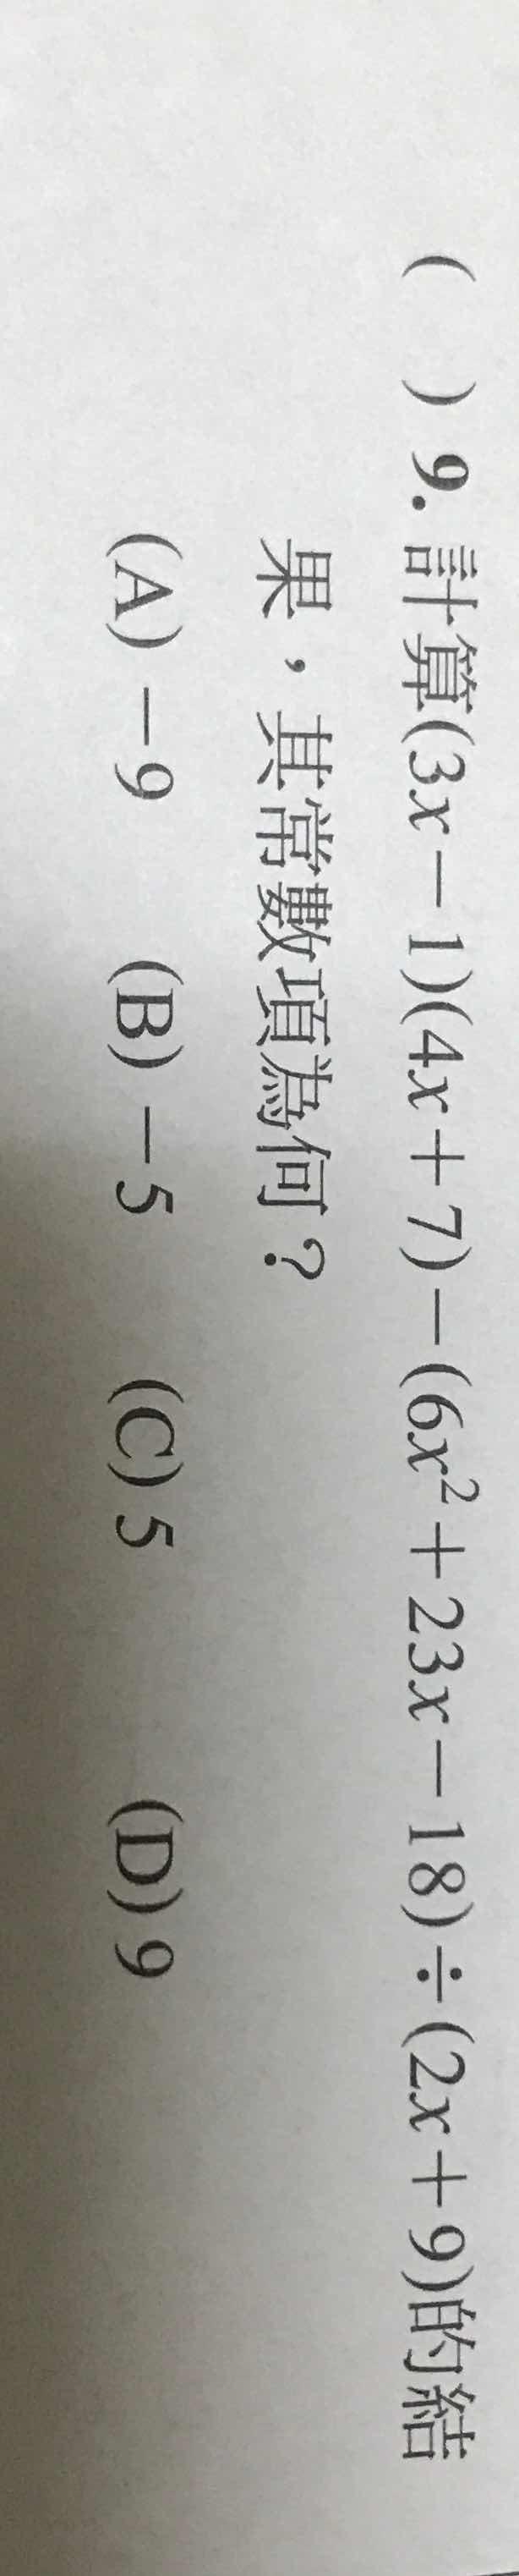 (　) 9. 計算(3x－1)(4x＋7)－(6x²＋23x－18)÷(2x＋9)的結
果，其常數項為何？
(A)－9　(B)－5　(C) 5　(D) 9